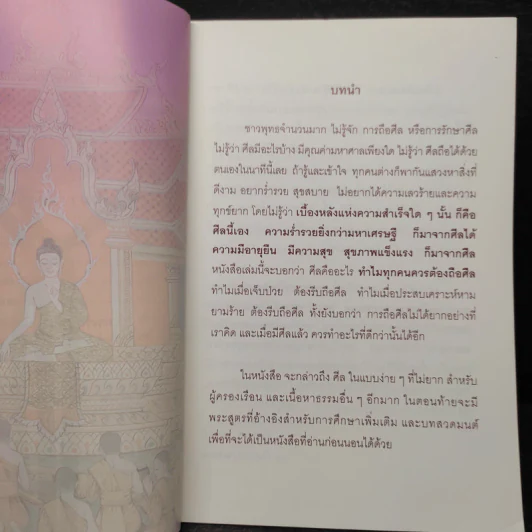 บทนำ
ชาวพุทธจำนวนมาก ไม่รู้จัก การถือศีล หรือการรักษาศีล
ไม่รู้ว่า ศีลมีอะไรบ้าง มีคุณค่ามหาศาลเพียงใด ไม่รู้ว่า ศีลถือได้ด้วย
ตนเองในนาทีนี้เลย ถ้ารู้และเข้าใจ ทุกคนต่างก็พากันแสวงหาสิ่งที่
ดีงาม อยากร่ำรวย สุขสบาย ไม่อยากได้ความเลวร้ายและความ
ทุกข์ยาก โดยไม่รู้ว่า เบื้องหลังแห่งความสำเร็จใด ๆ นั้น ก็คือ
ศีลนี้เอง ความร่ำรวยยิ่งกว่ามหาเศรษฐี ก็มาจากศีลได้
ความมีอายุยืน มีความสุข สุขภาพแข็งแรง ก็มาจากศีล
หนังสือเล่มนี้จะบอกว่า ศีลคืออะไร ทำไมทุกคนควรต้องถือศีล
ทำไมเมื่อเจ็บป่วย ต้องรีบถือศีล ทำไมเมื่อประสบเคราะห์หาม
ยามร้าย ต้องรีบถือศีล ทั้งยังบอกว่า การถือศีลไม่ได้ยากอย่างที่
เราคิด และเมื่อมีศีลแล้ว ควรทำอะไรที่ดีกว่านั้นได้อีก
ในหนังสือ จะกล่าวถึง ศีล ในแบบง่าย ๆ ที่ไม่ยาก สำหรับ
ผู้ครองเรือน และเนื้อหาธรรมอื่น ๆ อีกมาก ในตอนท้ายจะมี
พระสูตรที่อ้างอิงสำหรับการศึกษาเพิ่มเติม และบทสวดมนต์
เพื่อที่จะได้เป็นหนังสือที่อ่านก่อนนอนได้ด้วย